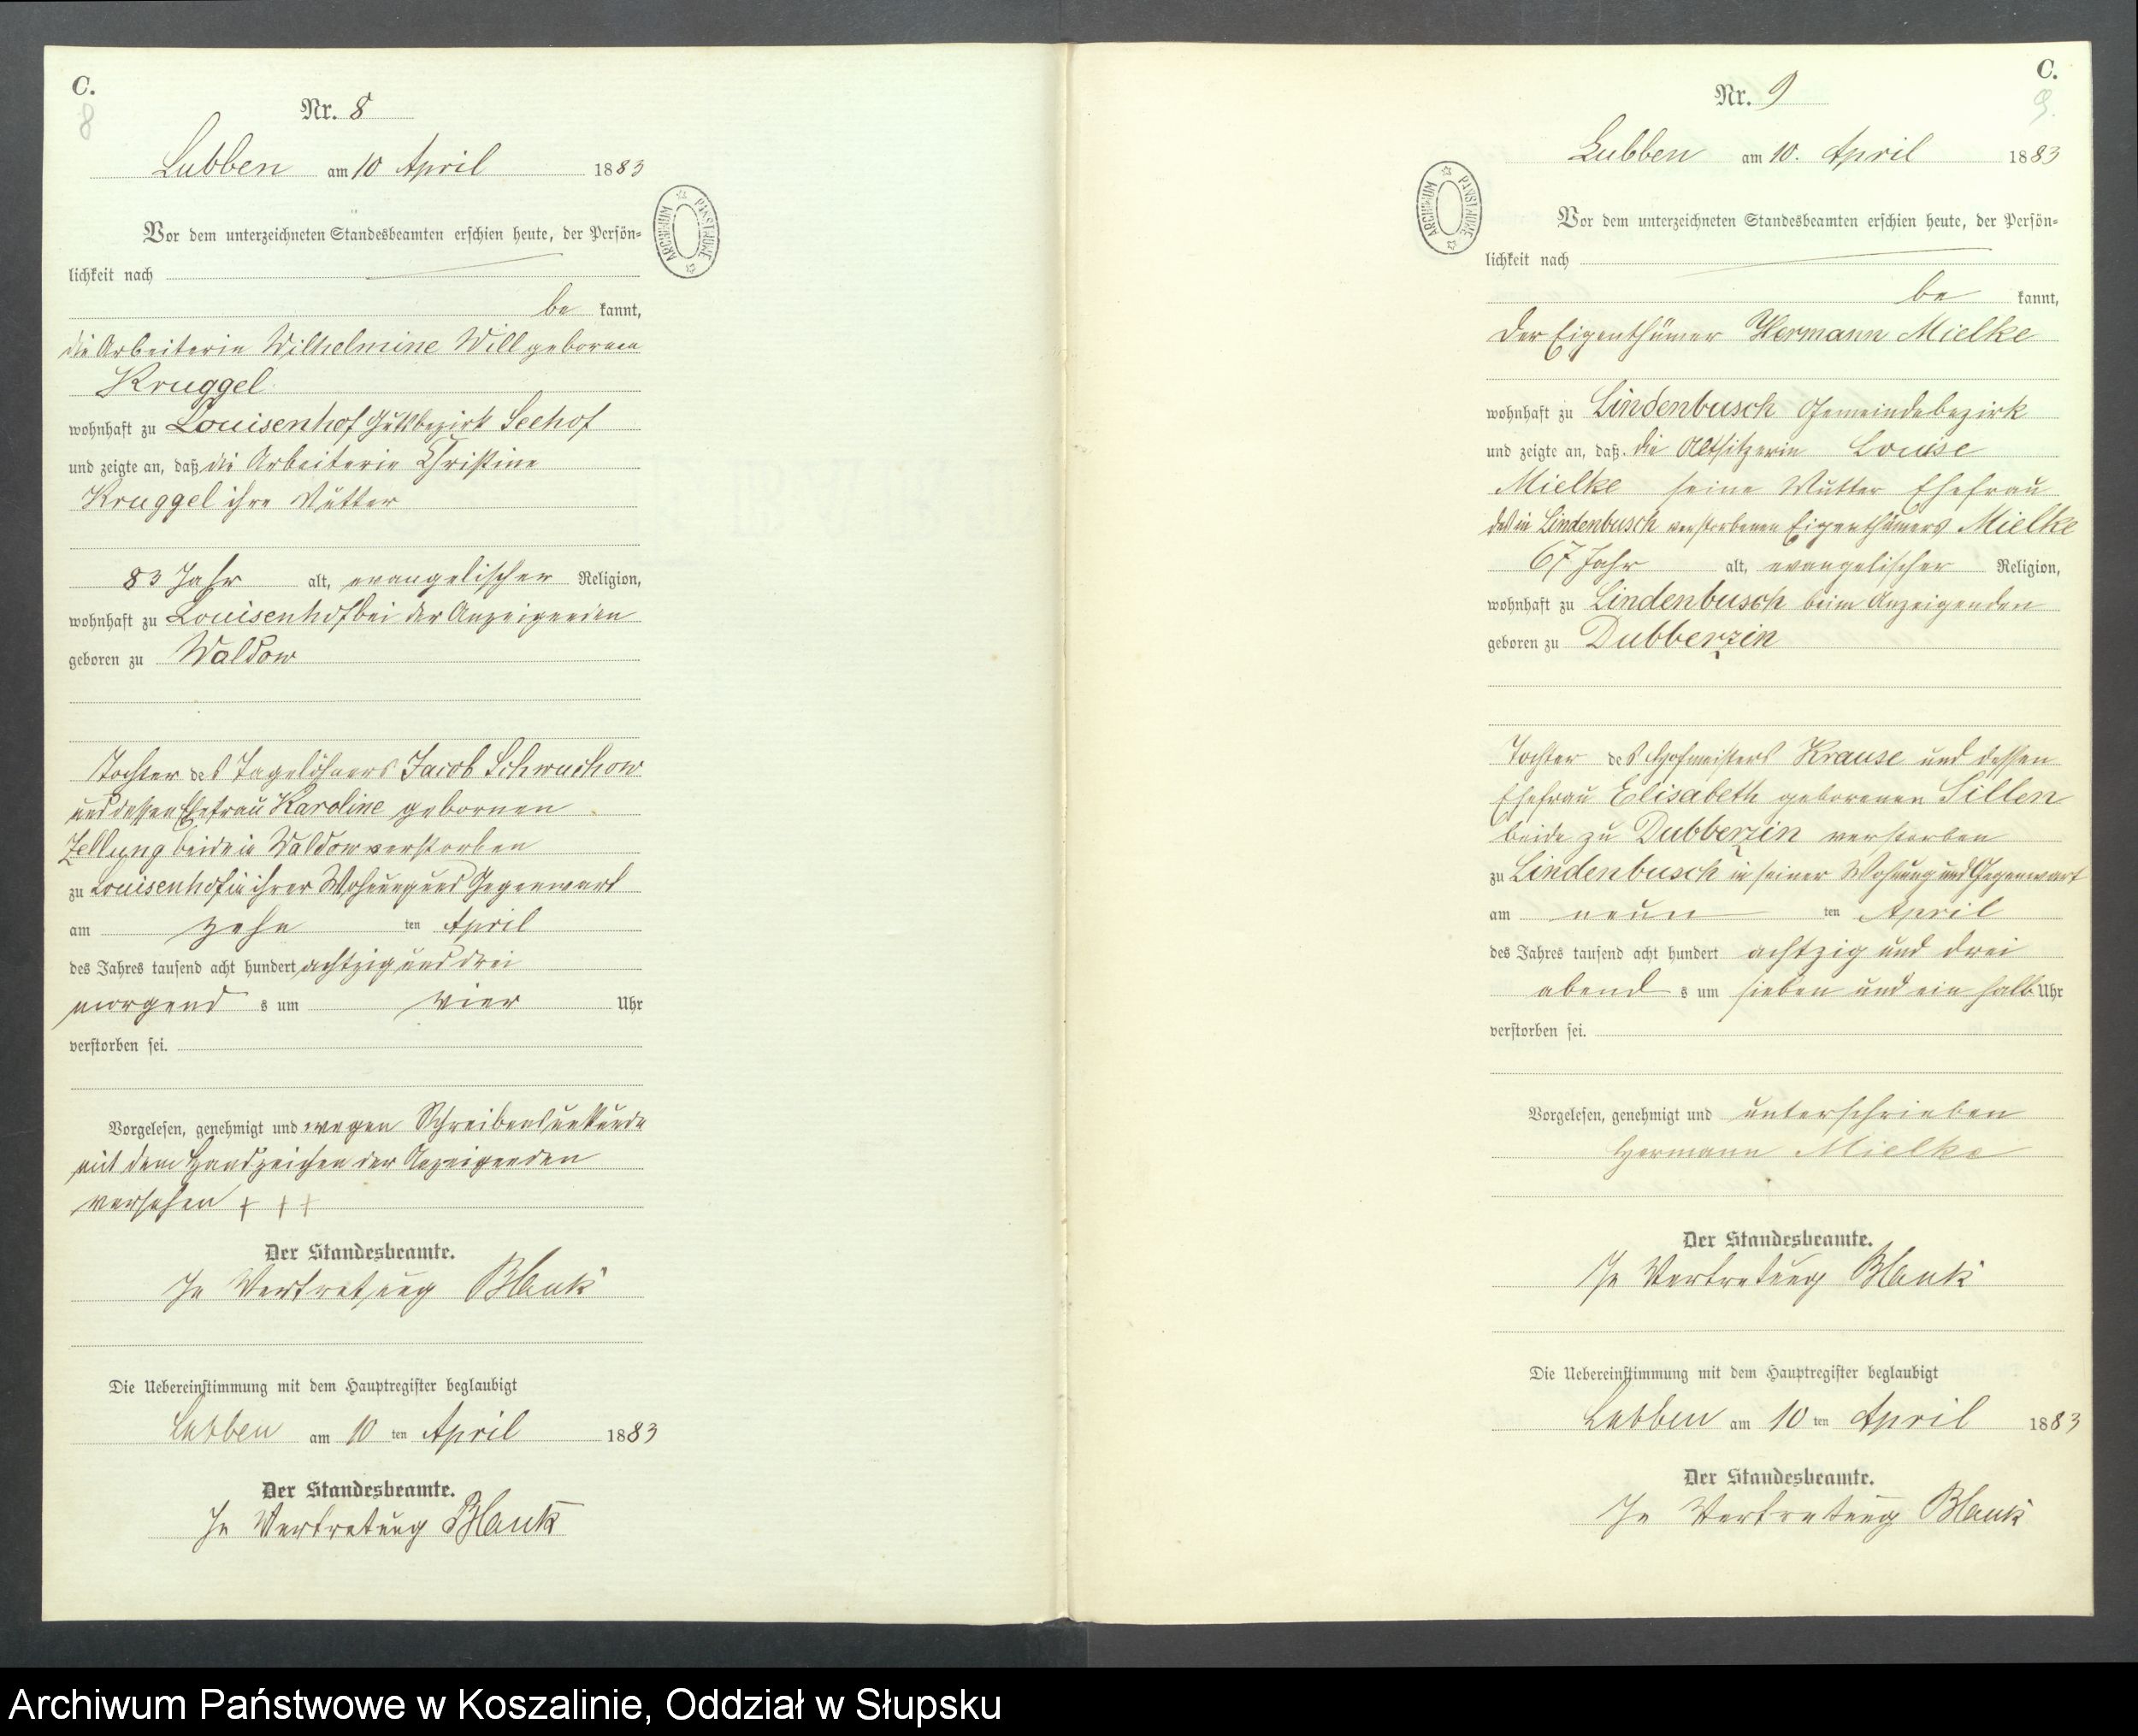 C.
8
Nr. 8
Lubben am 10 April 1883
Vor dem unterzeichneten Standesbeamten erschien heute, der Persön=
lichkeit nach
be kannt,
die Arbeiterin Wilhelmine Will gebornen
Kruggel
wohnhaft zu Louisenhof Gutsbezirk Seehof
und zeigte an, daß die Arbeiterin Christine
Kruggel ihre Mutter
83 Jahr alt, evangelischer Religion,
wohnhaft zu Louisenhof bei der Anzeigenden
geboren zu Waldow
Tochter des Tagelöhners Jacob Schwuchow
und dessen Ehefrau Karoline gebornen
beide in Waldow verstorben
zu Louisenhof in ihrer Wohnung und Gegenwart
am zehn ten April
des Jahres tausend acht hundert achtzig und drei
morgend s um vier Uhr
verstorben sei.
Vorgelesen, genehmigt und wegen Schreibensunkunde
mit dem Handzeichen der Anzeigenden
versehen + + +
Der Standesbeamte.
In Vertretung Blank
Die Uebereinstimmung mit dem Hauptregister beglaubigt
Lubben am 10 ten April 1883
Der Standesbeamte.
In Vertretung Blank
ARCHIWUM PAŃSTWOWE
C.
9.
Nr. 9
Lubben am 10. April 1883
ARCHIWUM PAŃSTWOWE
Vor dem unterzeichneten Standesbeamten erschien heute, der Persön=
lichkeit nach
be kannt,
der Eigenthümer Hermann Mielke
wohnhaft zu Lindenbusch Gemeindebezirk
und zeigte an, daß die Altsitzerin Louise
Mielke seine Mutter Ehefrau
des in Lindenbusch verstorbenen Eigenthümers Mielke
67 Jahr alt, evangelischer Religion,
wohnhaft zu Lindenbusch beim Anzeigenden
geboren zu Dubberzin
Tochter des Hofmeisters Krause und dessen
Ehefrau Elisabeth geborenen Sillen
beide zu Dubberzin verstorben
zu Lindenbusch in seiner Wohnung und Gegenwart
am neun ten April
des Jahres tausend acht hundert achtzig und drei
abend s um sieben und ein halb Uhr
verstorben sei.
Vorgelesen, genehmigt und unterschrieben
Hermann Mielke
Der Standesbeamte.
In Vertretung Blank
Die Uebereinstimmung mit dem Hauptregister beglaubigt
Lubben am 10 ten April 1883
Der Standesbeamte.
In Vertretung Blank
Archiwum Państwowe w Koszalinie, Oddział w Słupsku